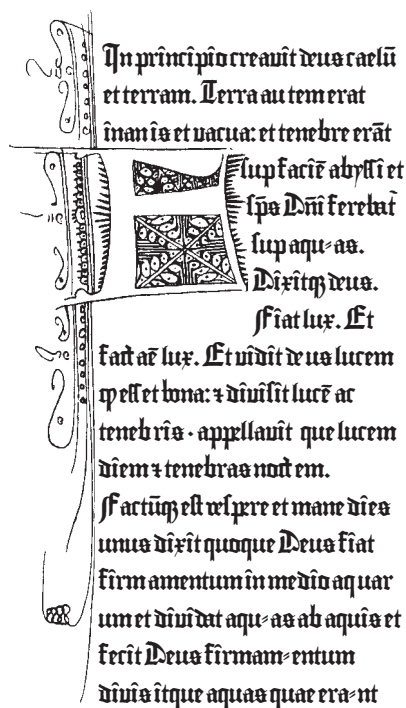 In principio creavit deus caelū
et terram. Terra au tem erat
inan is et vacua: et tenebre erāt
sup faciē abyssi et
sp̄s Dn̄i ferebat̄
sup aqu-as.
Dixitqꝫ deus.
Fiat lux. Et
fact aē lux. Et vidit de us lucem
ꝙ esset bona: ⁊ divisit lucē ac
teneb ris · appellavit que lucem
diem ⁊ tenebras noct em.
Factūqꝫ est vespere et mane dies
unus dixit quoque Deus fiat
firm amentum in medio aq uar
um et dividat aqu-as ab aquis et
fecit Deus firmam-entum
divis itque aquas quae era-nt